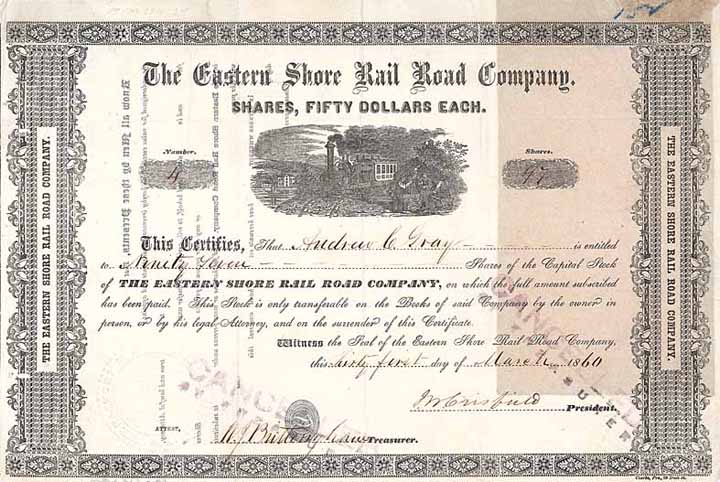 The Eastern Shore Rail Road Company.
SHARES, FIFTY DOLLARS EACH.
Number. Shares.
4 97
This Certifies, That Andrew C. Gray is entitled
to Ninety Seven Shares of the Capital Stock
of THE EASTERN SHORE RAIL ROAD COMPANY, on which the full amount subscribed
has been paid. This Stock is only transferable on the Books of said Company by the owner in
person, or by his legal Attorney, and on the surrender of this Certificate.
Witness the Seal of the Eastern Shore Rail Road Company,
this first day of March 1860
J W Crisfield President.
ATTEST, Treasurer.
THE EASTERN SHORE RAIL ROAD COMPANY.
THE EASTERN SHORE RAIL ROAD COMPANY.
CANCE